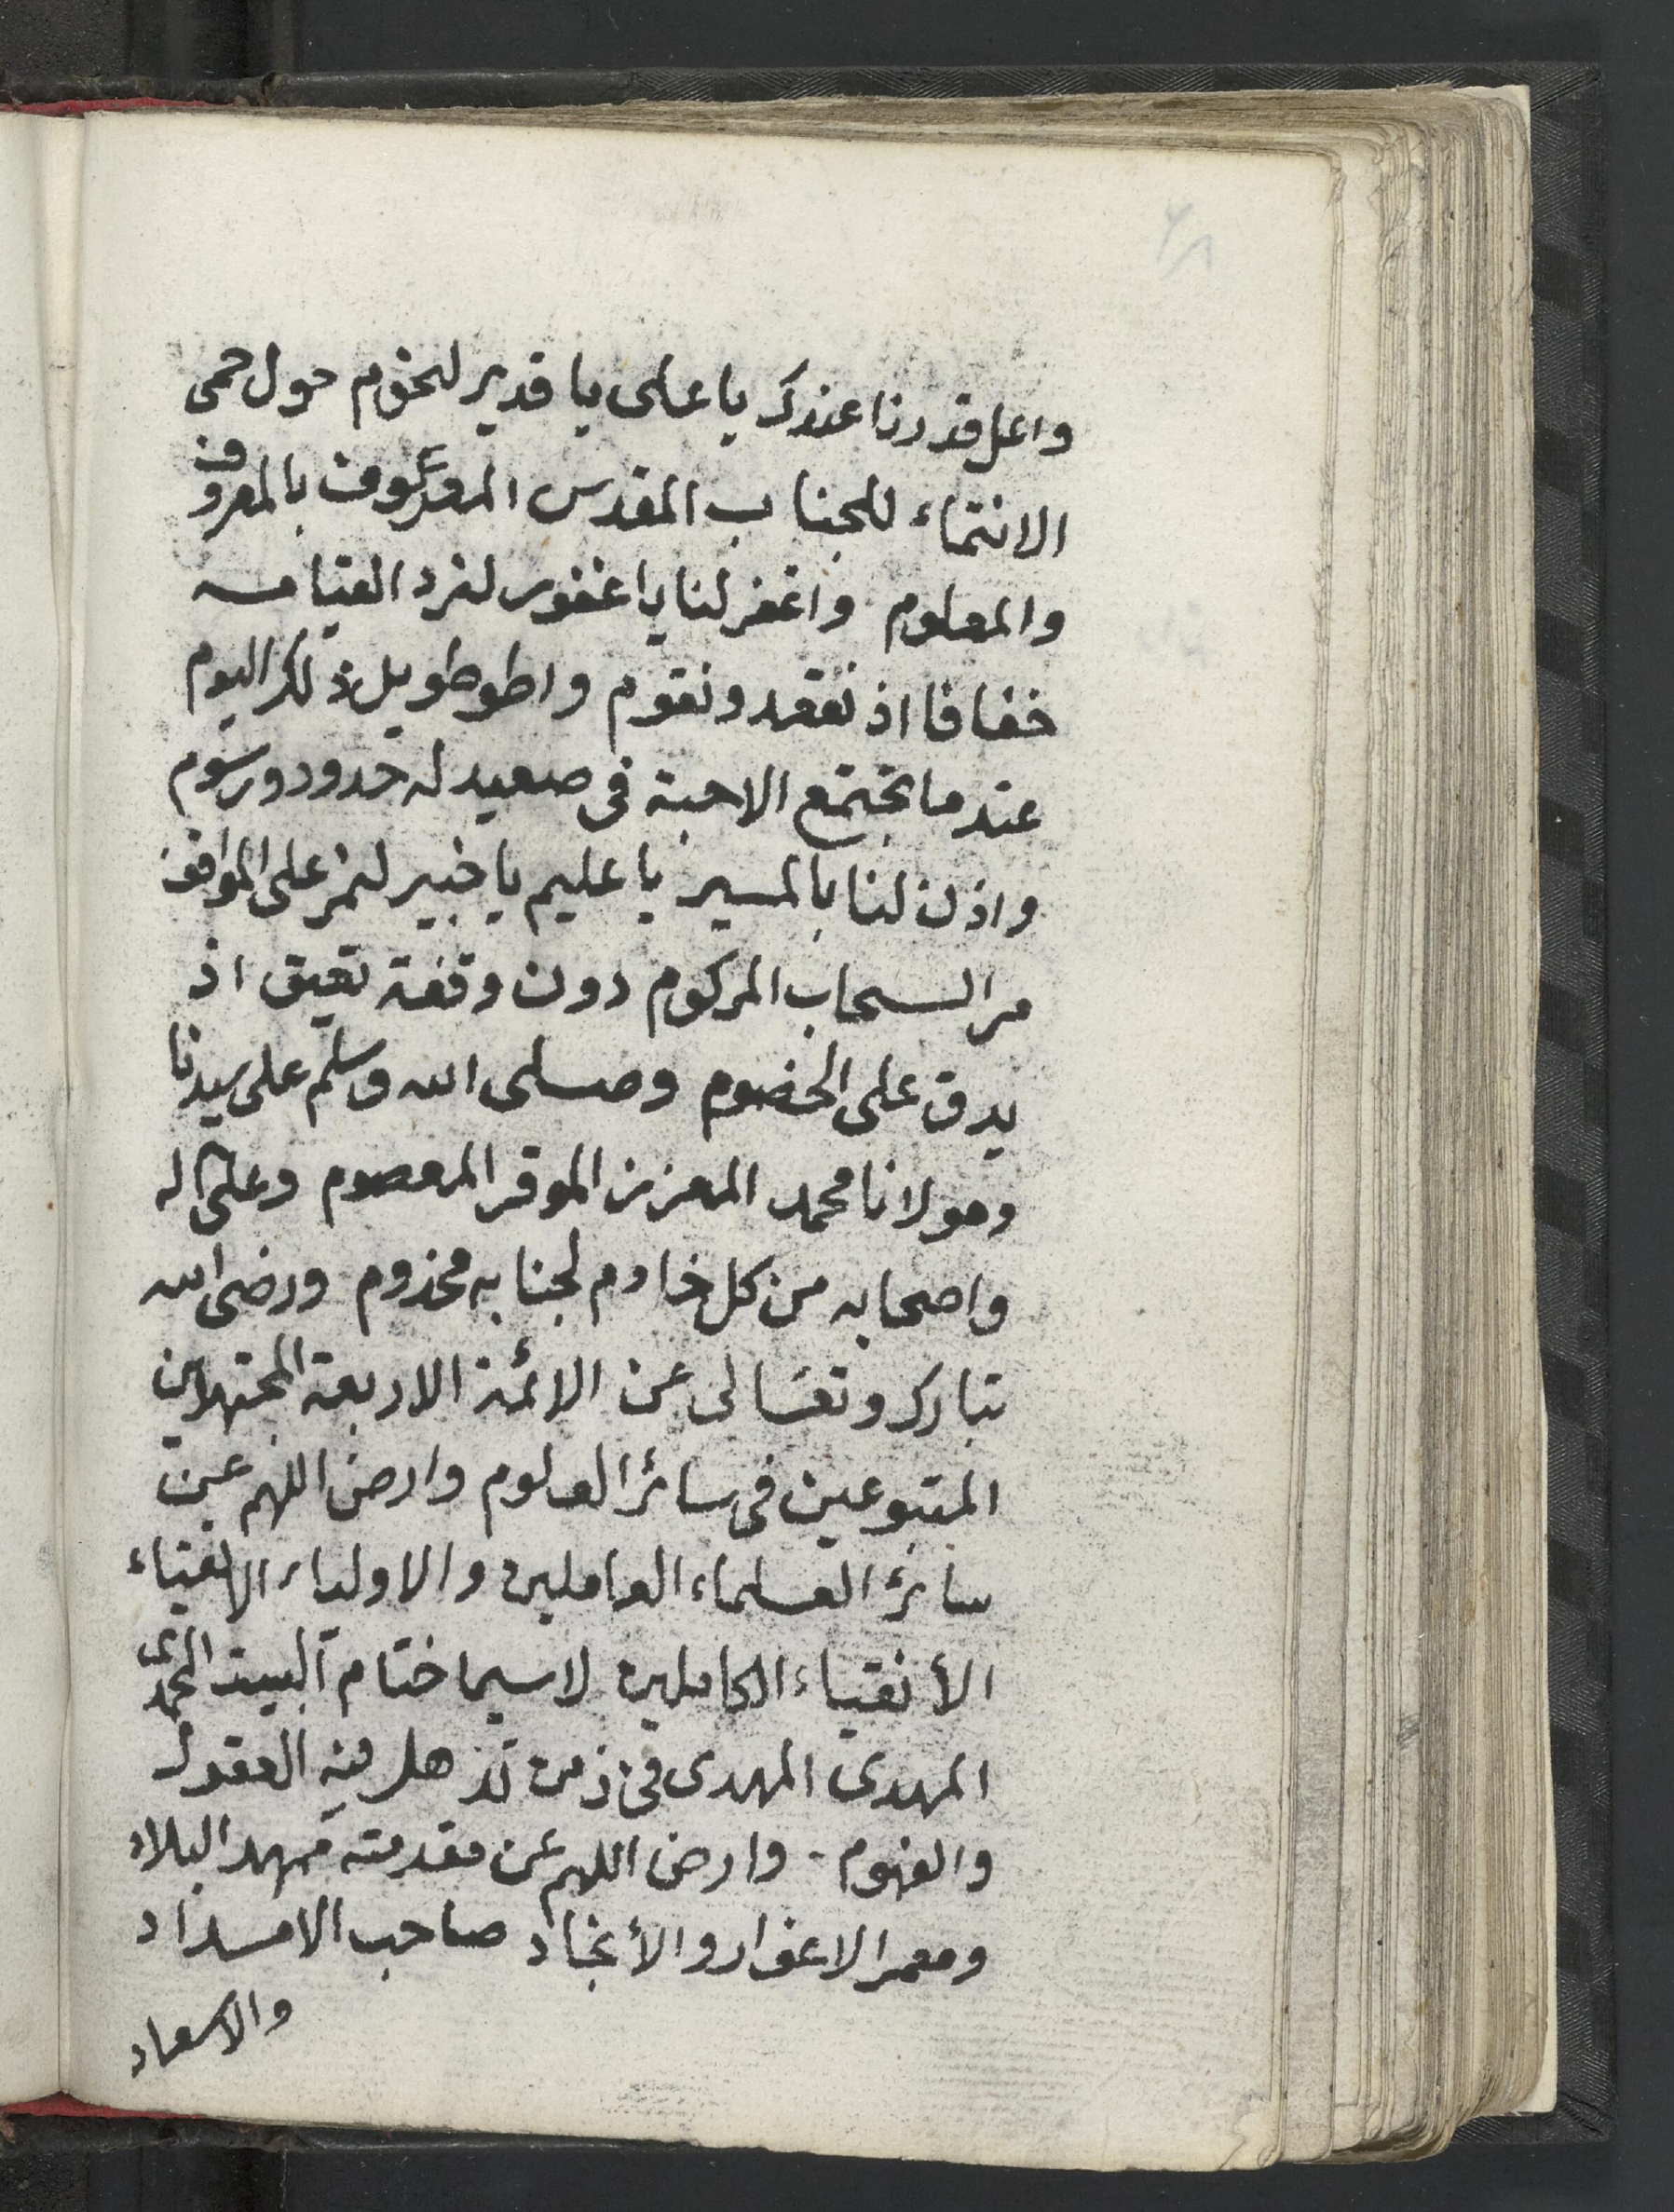 واعل قدرنا عندك يا على يا قدير لنحوم حول حمى
الانتماء للجناب المقدس الموصوف بالمعروف
والمعلوم واغفر لنا يا غفور لنرد القيامه
خفافا اذ نقعد ونقوم واطو طويل ذلك اليوم
عندما تجتمع الاحبة فى صعيد له حدود ورسوم
واذن لنا بالمسير يا عليم يا خبير لنمر على المواقف
مر السحاب المركوم دون وقفة تعيق اذ
يدق على الخصوم وصلى الله وسلم على سيدنا
ومولانا محمد المعزز الموقر المعصوم وعلى اله
واصحابه من كل خادم لجنابه مخدوم ورضى الله
تبارك وتعالى عن الائمة الاربعة المجتهدين
المتبوعين فى سائر العلوم وارض اللهم عن
سائر العلماء العاملين والاولياء الاتقياء
الأنقياء الكاملين لاسيما ختام البيت المحمدى
المهدى المهدى فى زمن تذهل فيه العقول
والفهوم . وارض اللهم عن مقدمته ممهد البلاد
ومعمر الاغوار والأنجاد صاحب الامداد
والاسعاد